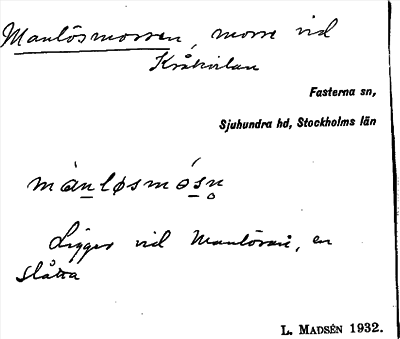 Manlösmossen, mosse vid
Kråkvilan
Fasterna sn,
Sjuhundra hd, Stockholms län
mànløsmósn̥
Ligger vid Manlösan, en
slåtta
L. MADSÉN 1932.